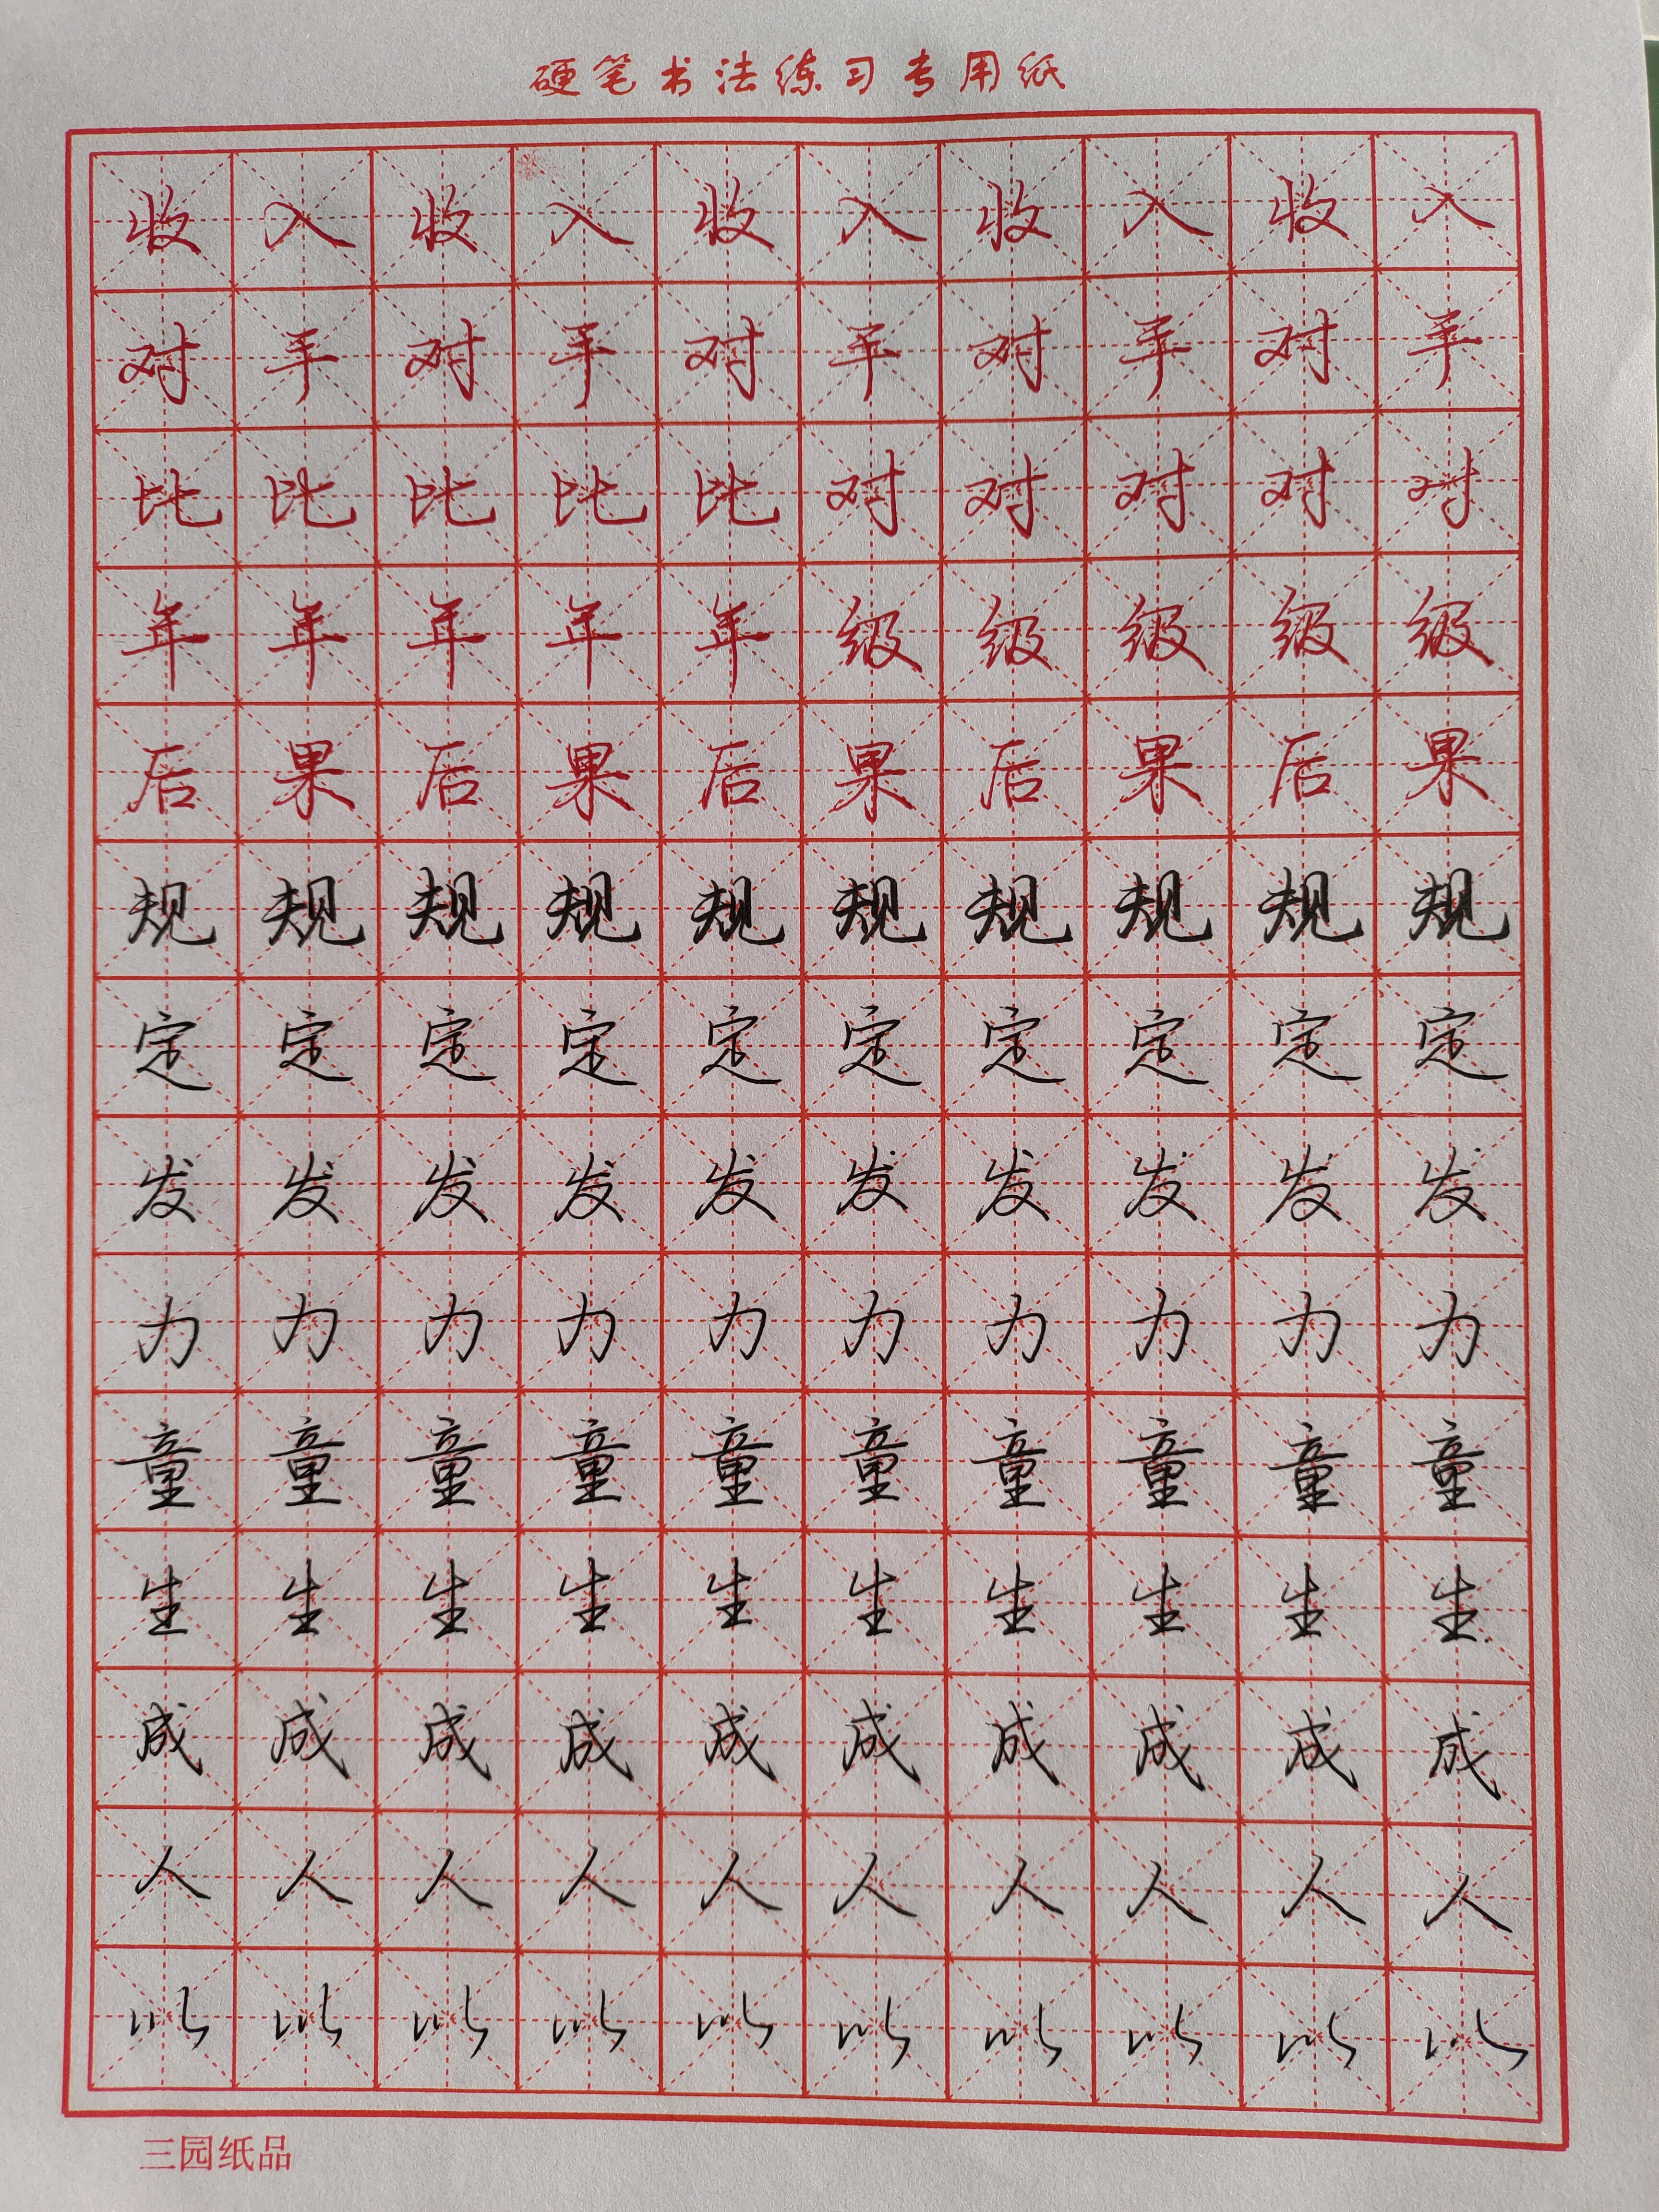 硬笔书法练习专用纸
收入收入收入收入收入
对手对手对手对手对手
比比比比比对对对对对
年年年年年级级级级级
后果后果后果后果后果
规规规规规规规规规规
定定定定定定定定定定
发发发发发发发发发发
力力力力力力力力力力
童童童童童童童童童童
生生生生生生生生生生
成成成成成成成成成成
人人人人人人人人人人
以以以以以以以以以以
三园纸品